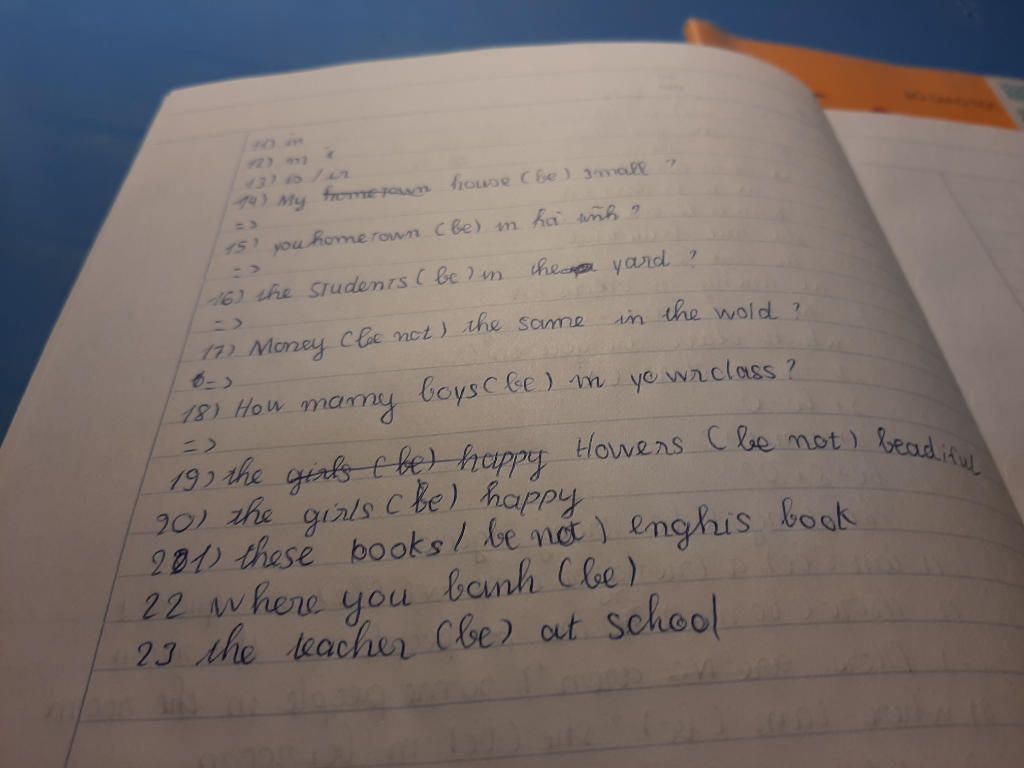 11) in
12) m
13) is / in
14) My hometown house (be) small ?
=>
15) you hometown (be) in hà tĩnh ?
=>
16) the students (be) in the yard ?
=>
17) Money (be not) the same in the wold ?
=>
18) How mamy boys (be) in your class ?
=>
19) the girls (be) happy flowers (be not) beadiful
20) the girls (be) happy
21) these books / be not ) enghis book
22 where you banh (be)
23 the teacher (be) at school